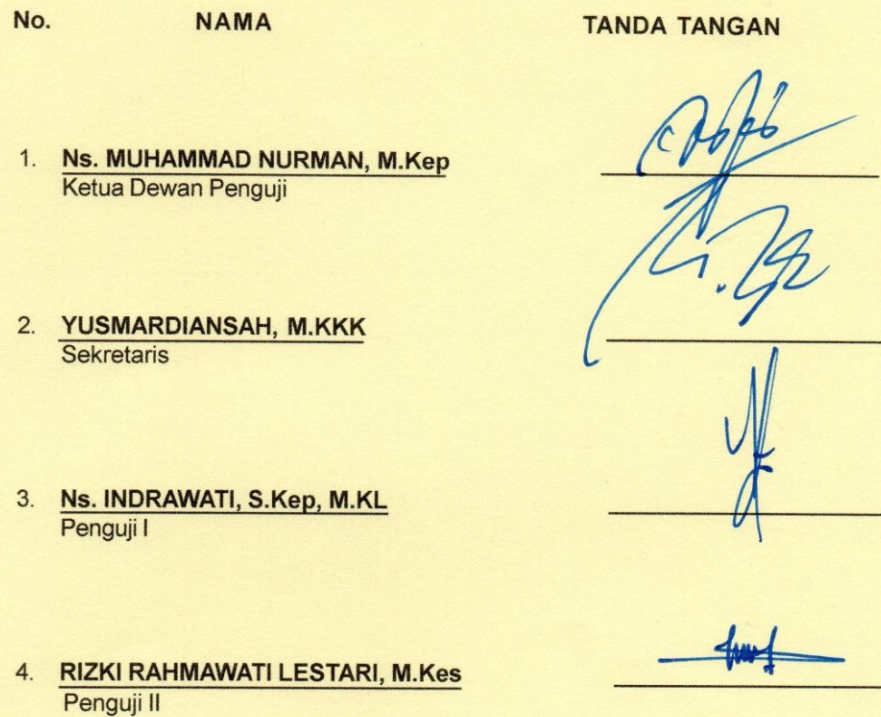 No. NAMA TANDA TANGAN
1. Ns. MUHAMMAD NURMAN, M.Kep
Ketua Dewan Penguji
2. YUSMARDIANSAH, M.KKK
Sekretaris
3. Ns. INDRAWATI, S.Kep, M.KL
Penguji I
4. RIZKI RAHMAWATI LESTARI, M.Kes
Penguji II